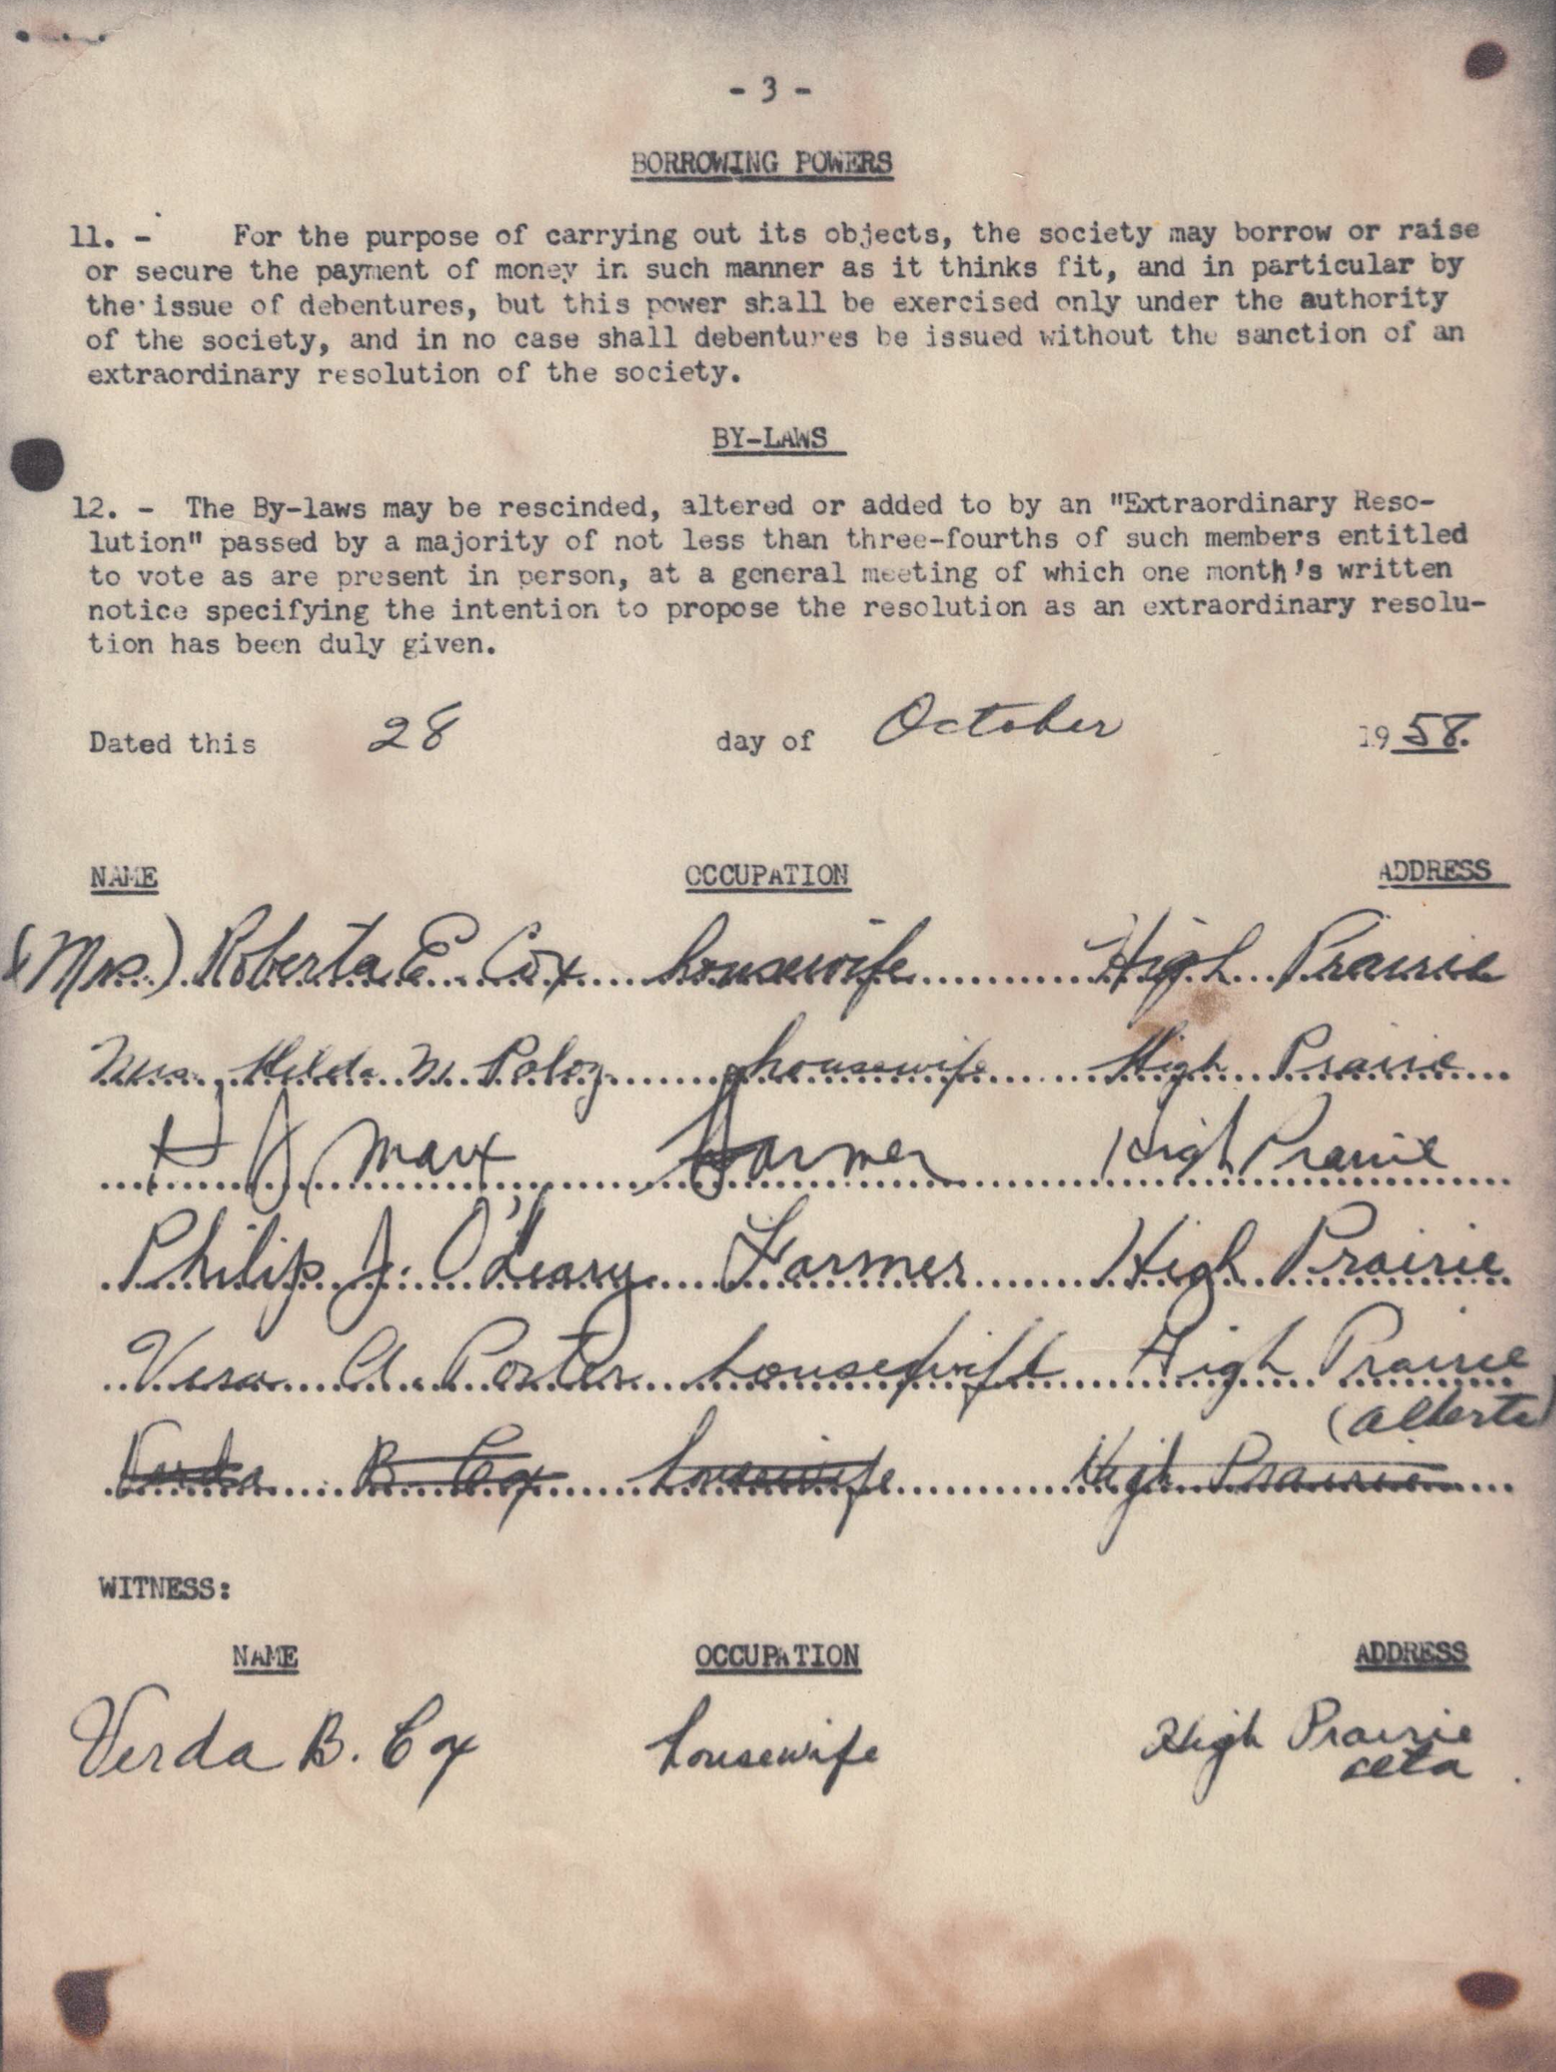 - 3 -
BORROWING POWERS
11. - For the purpose of carrying out its objects, the society may borrow or raise
or secure the payment of money in such manner as it thinks fit, and in particular by
the issue of debentures, but this power shall be exercised only under the authority
of the society, and in no case shall debentures be issued without the sanction of an
extraordinary resolution of the society.
BY-LAWS
12. - The By-laws may be rescinded, altered or added to by an "Extraordinary Reso-
lution" passed by a majority of not less than three-fourths of such members entitled
to vote as are present in person, at a general meeting of which one month's written
notice specifying the intention to propose the resolution as an extraordinary resolu-
tion has been duly given.
Dated this 28 day of October 1958.
NAME OCCUPATION ADDRESS
(Mrs.) Roberta E. Cox housewife High Prairie
Mrs. Hilda M. housewife High Prairie
H J Marx Farmer High Prairie
Philip J. O'Leary Farmer High Prairie
Vera A. Porter housewife High Prairie
(Alberta)
Verda B. Cox housewife High Prairie
WITNESS:
NAME OCCUPATION ADDRESS
Verda B. Cox housewife High Prairie
Alta